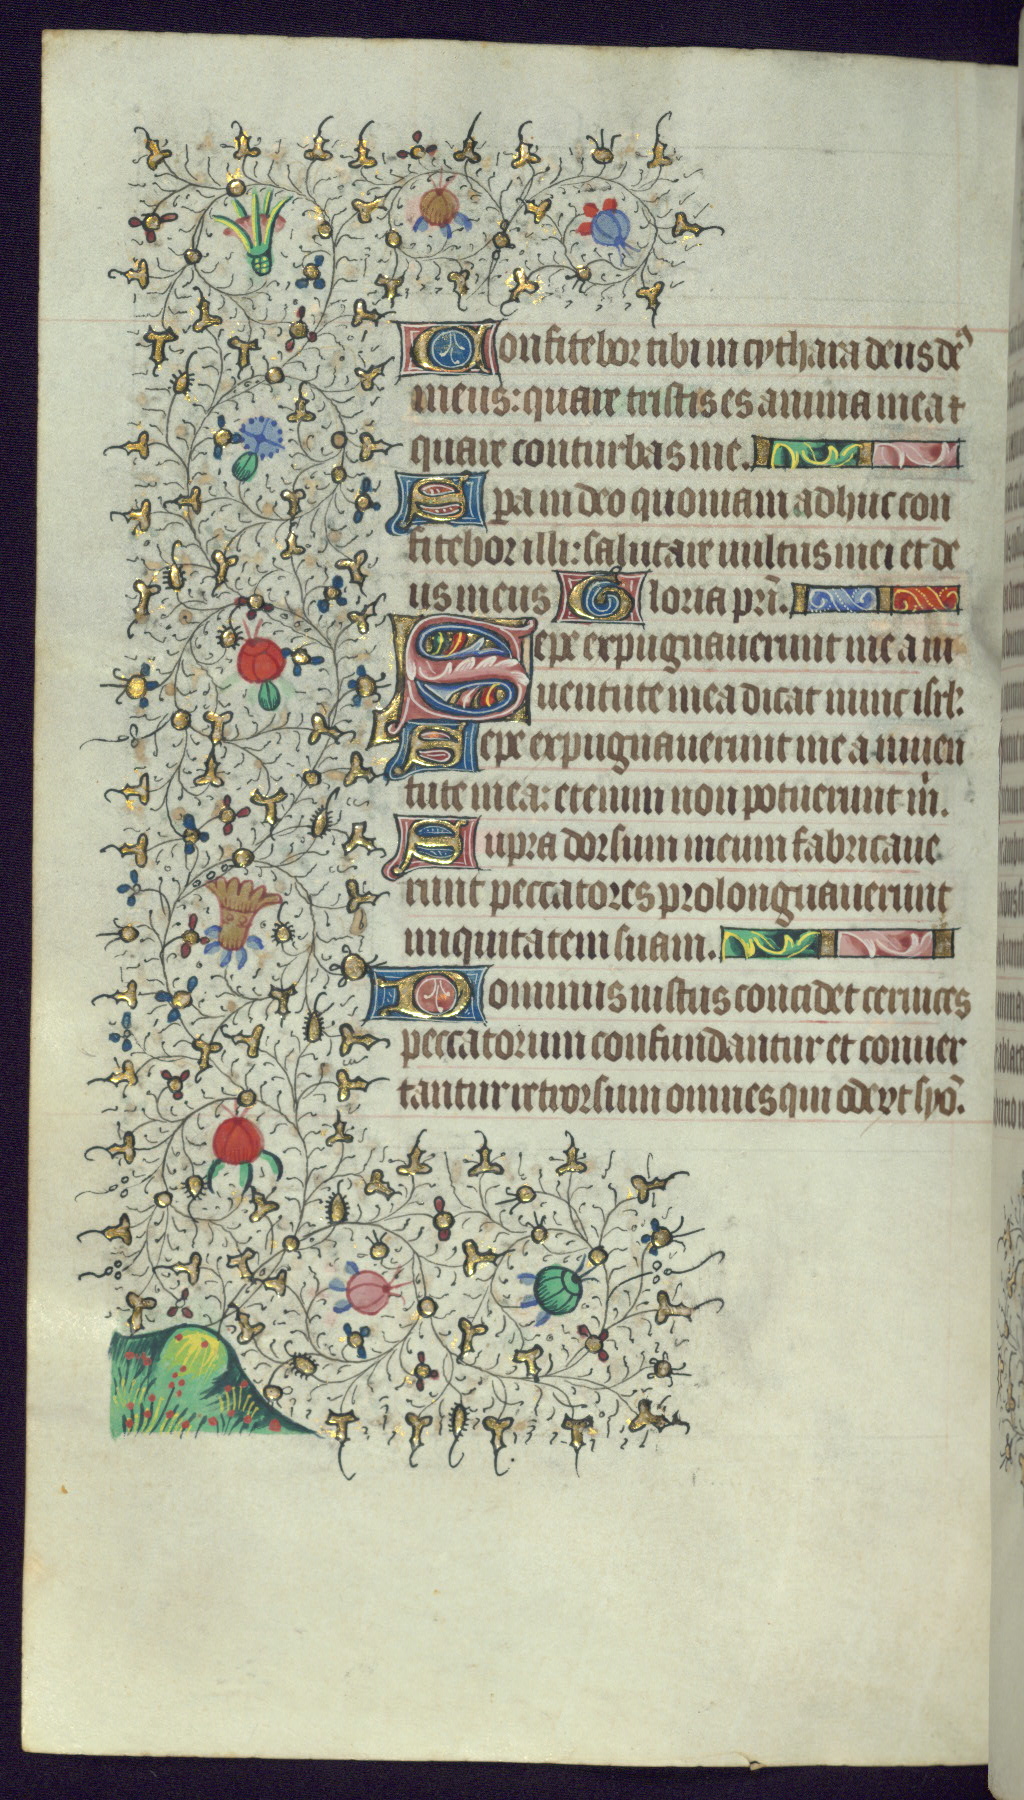 Confitebor tibi in cythara deus de᾽
meus: quare tristis es anima mea ⁊
quare conturbas me.
Spera in deo quoniam adhuc con
fitebor illi: salutare vultus mei et de
us meus Gloria pr̃i.
Sepe expugnauerunt me a iu
uentute mea dicat nunc isrl.
Sepe expugnauerunt me a iuuen
tute mea: etenim non potuerunt m̃.
Supra dorsum meum fabricaue
runt peccatores prolonguauerunt
iniquitatem suam.
Dominus iustus concidet ceruices
peccatorum confundantur et conuer
tantur retrorsum omnes qui oderūt syō.